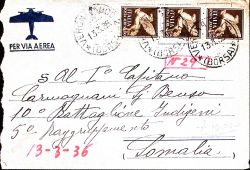 PER VIA AEREA
N 29
Al 1° Capitano
Carmagnani G. Denso
10° Battaglione Indigeni
5° Raggruppamento
13-3-36
Somalia